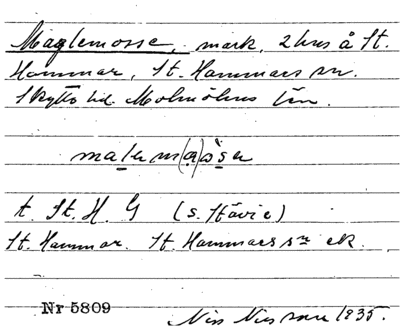 Maglemosse, mark, 2 hus å St.
Hammar, St. Hammars sn.
Skytts hd. Malmöhus län.
t. St. H. G (S. Håvie)
St. Hammar. St. Hammars sn ek.
Nr 5809
Nils Nilsson 1935.